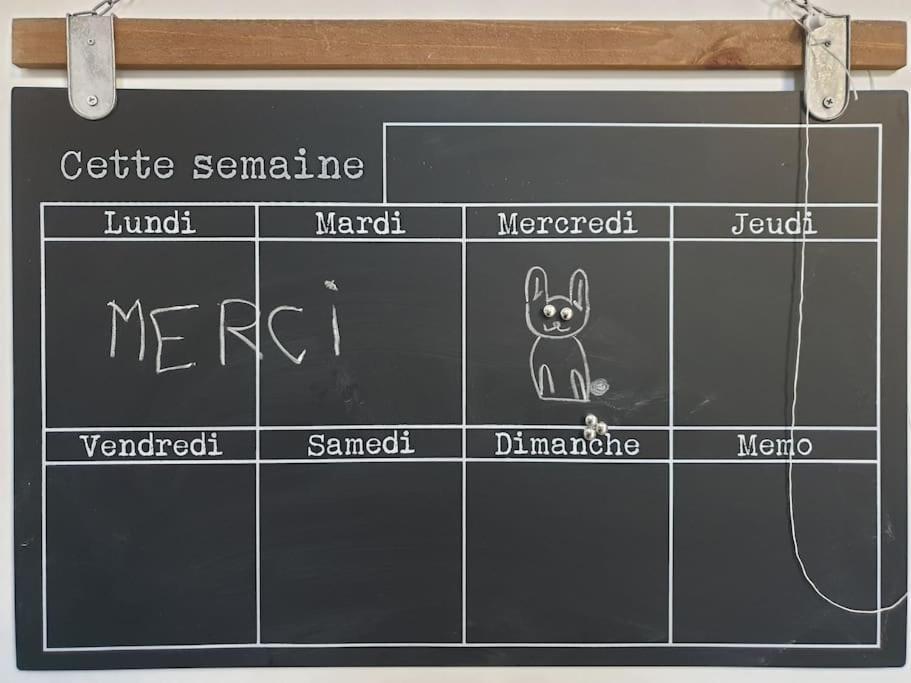 Cette semaine
Lundi Mardi Mercredi Jeudi
MERCi
Vendredi Samedi Dimanche Memo